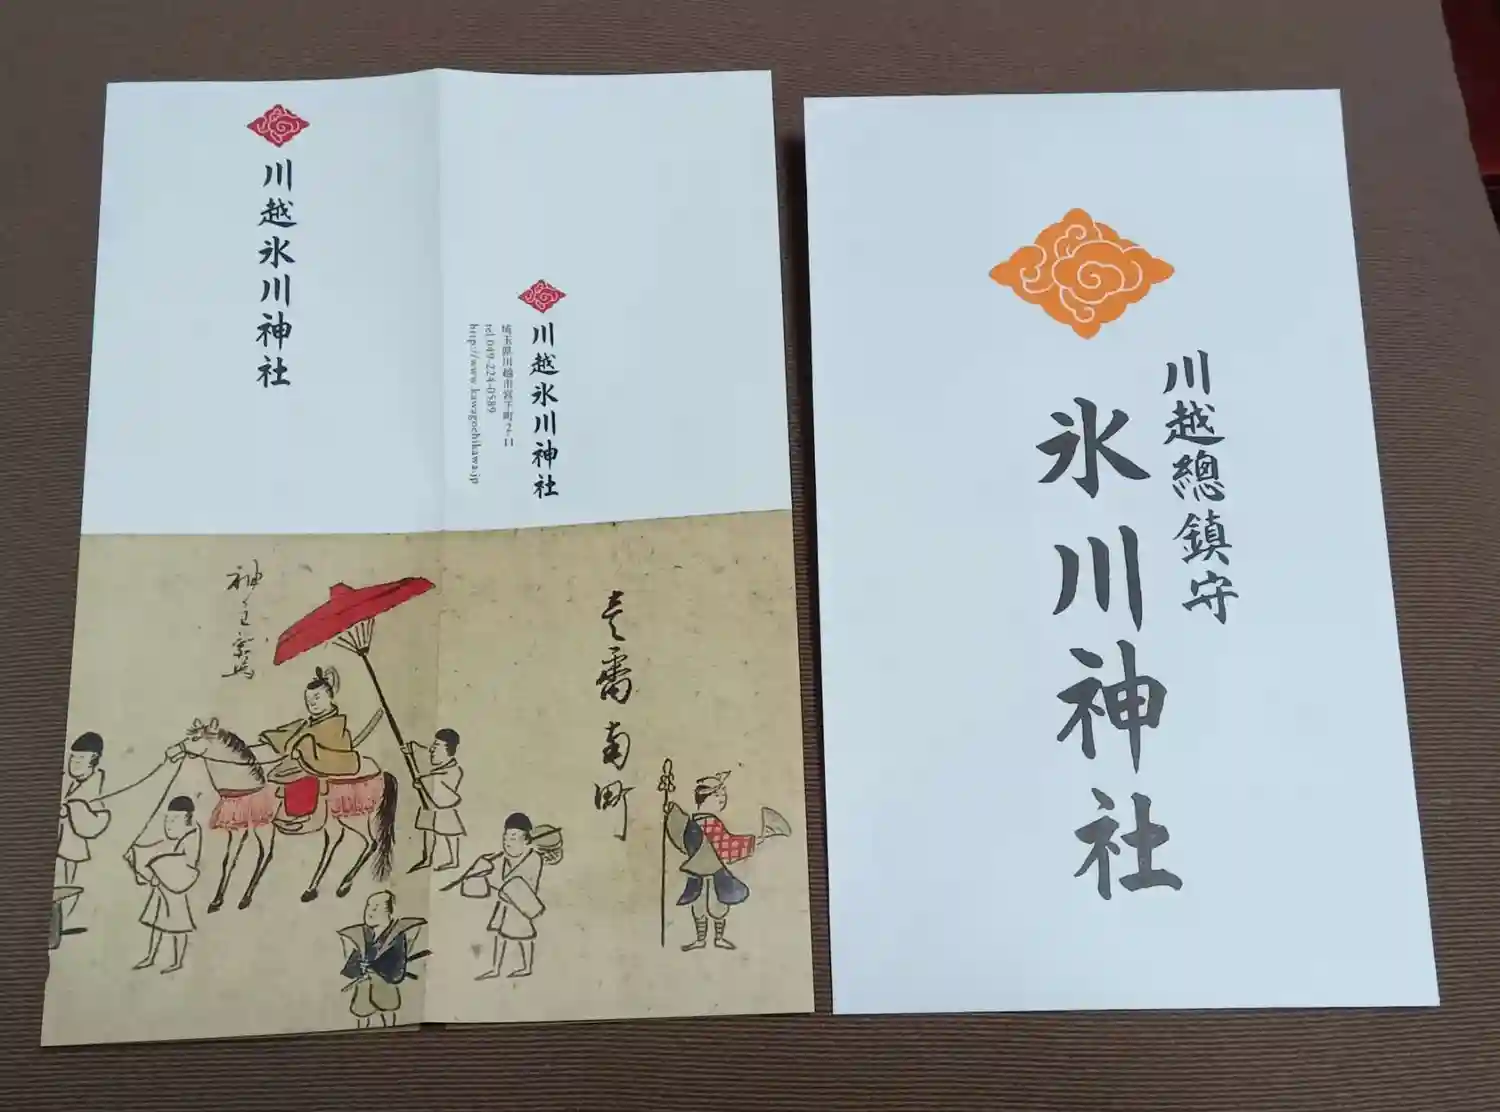 川越氷川神社
川越氷川神社
埼玉県川越市宮下町2-11
tel.049-224-0589
http://www.kawagoehikawa.jp
南町
川越總鎮守
氷川神社